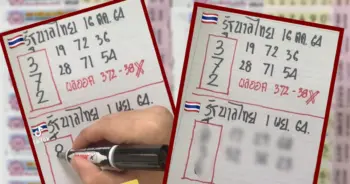 รัฐบาลไทย 16 ตค. 64
19 72 36
3
7
28 71 54
2
372 - 38X
รัฐบาลไทย 1 พย. 64.
8
รัฐบาลไทย 16 ตค. 64
19 72 36
3
7
28 71 54
2
372 - 38X
รัฐบาลไทย 1 พย. 64.